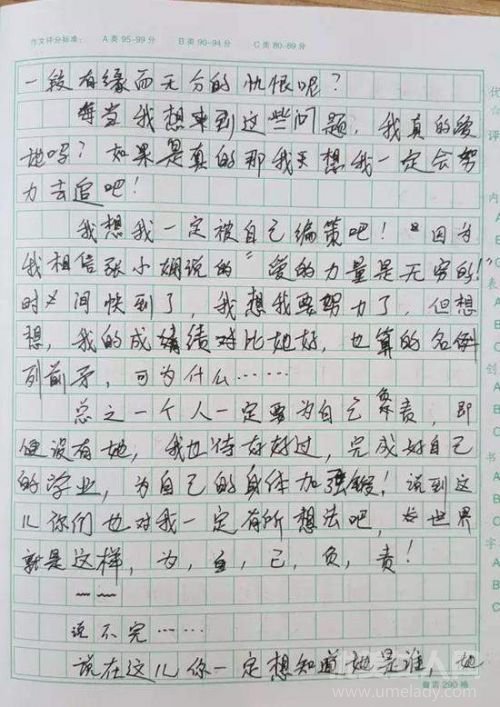 作文评分标准： A类95-99分 B类90-94分 C类80-89分
一段有缘而无分的仇恨呢？
每当我想来到这些问题，我真的爱
她吗？如果是真的那我天想我一定会努
力去追吧！
我想我一定被自己编策吧！“因为
我相信张小娴说的“爱的力量是无穷的！”
时间快到了，我想我要努力了，但想
想，我的成绩对比她好，也算的名例
列前矛，可为什么……
总之一个人一定要为自己负责，即
使没有她，我也待好好过，完成好自己
的学业，为自己的身体加强锻！说到这
儿你们也对我一定有所想法吧，世界
就是这样，为，自，己，负，责！
~ ~
说不完……
说在这儿你一定想知道她是谁，她
优
评
内
A
B
C
表
A
创
A
书
A
B
字
A
B
C
290格
www.umelady.com